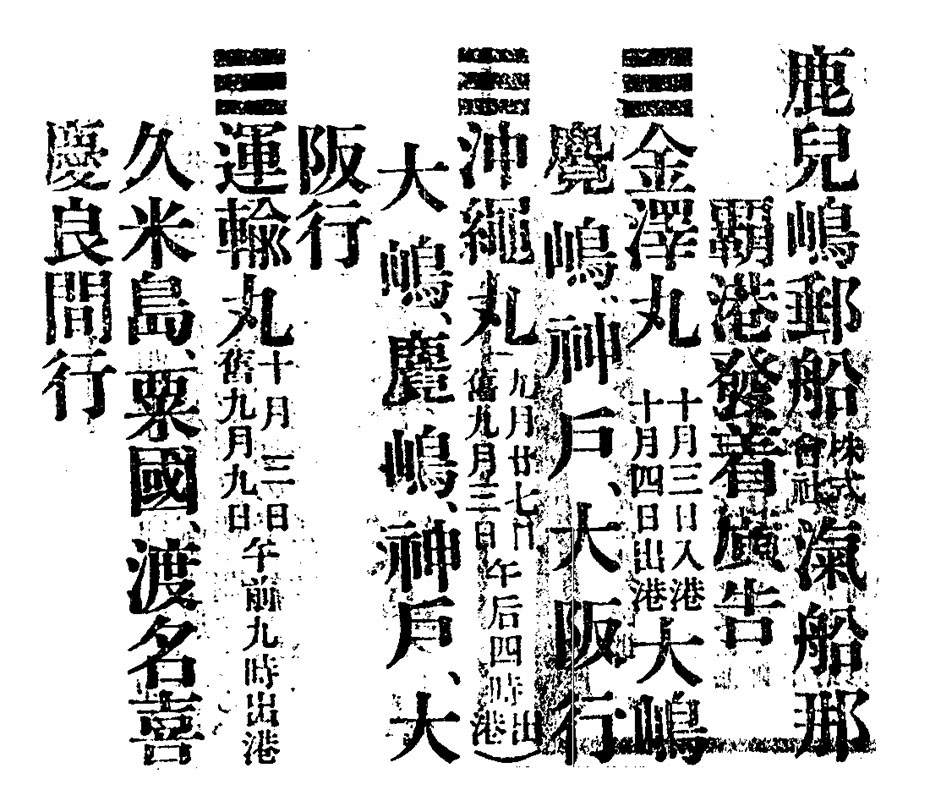 鹿兒嶋郵船株式會社滊船那
覇港發着廣告
金澤丸 十月三日入港 十月四日出港 大嶋
麑嶋、神戶、大阪行
沖繩丸 九月廿七日 舊九月三日 午后四時出港
大嶋、麑嶋、神戶、大
阪行
運輸丸 十月三日 舊九月九日 午前九時出港
久米島、粟國、渡名喜
慶良間行